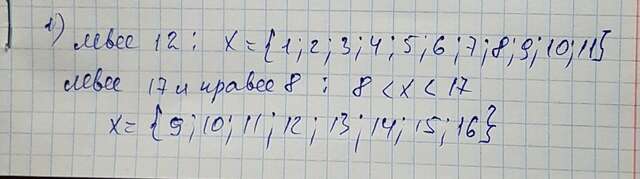 1) левее 12 : x = {1; 2; 3; 4; 5; 6; 7; 8; 9; 10; 11}
левее 17 и правее 8 : 8 < x < 17
x = {9; 10; 11; 12; 13; 14; 15; 16}